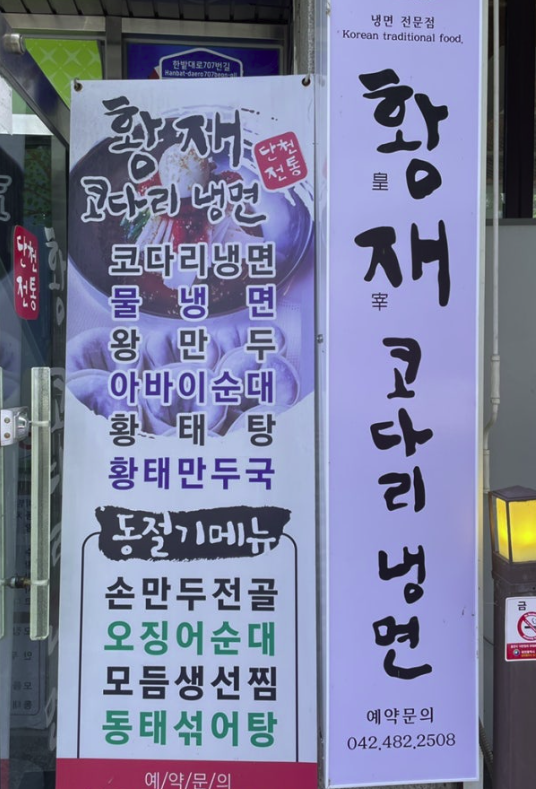 한밭대로707번길
Hanbat-daero707beon-gil
황재
코다리 냉면
단천
전통
코다리냉면
물냉면
왕만두
아바이순대
황태탕
황태만두국
동절기메뉴
손만두전골
오징어순대
모듬생선찜
동태섞어탕
예/약/문/의
냉면 전문점
Korean traditional food.
황
皇
재
宰
코다리
냉면
예약문의
042.482.2508
단천
전통
금